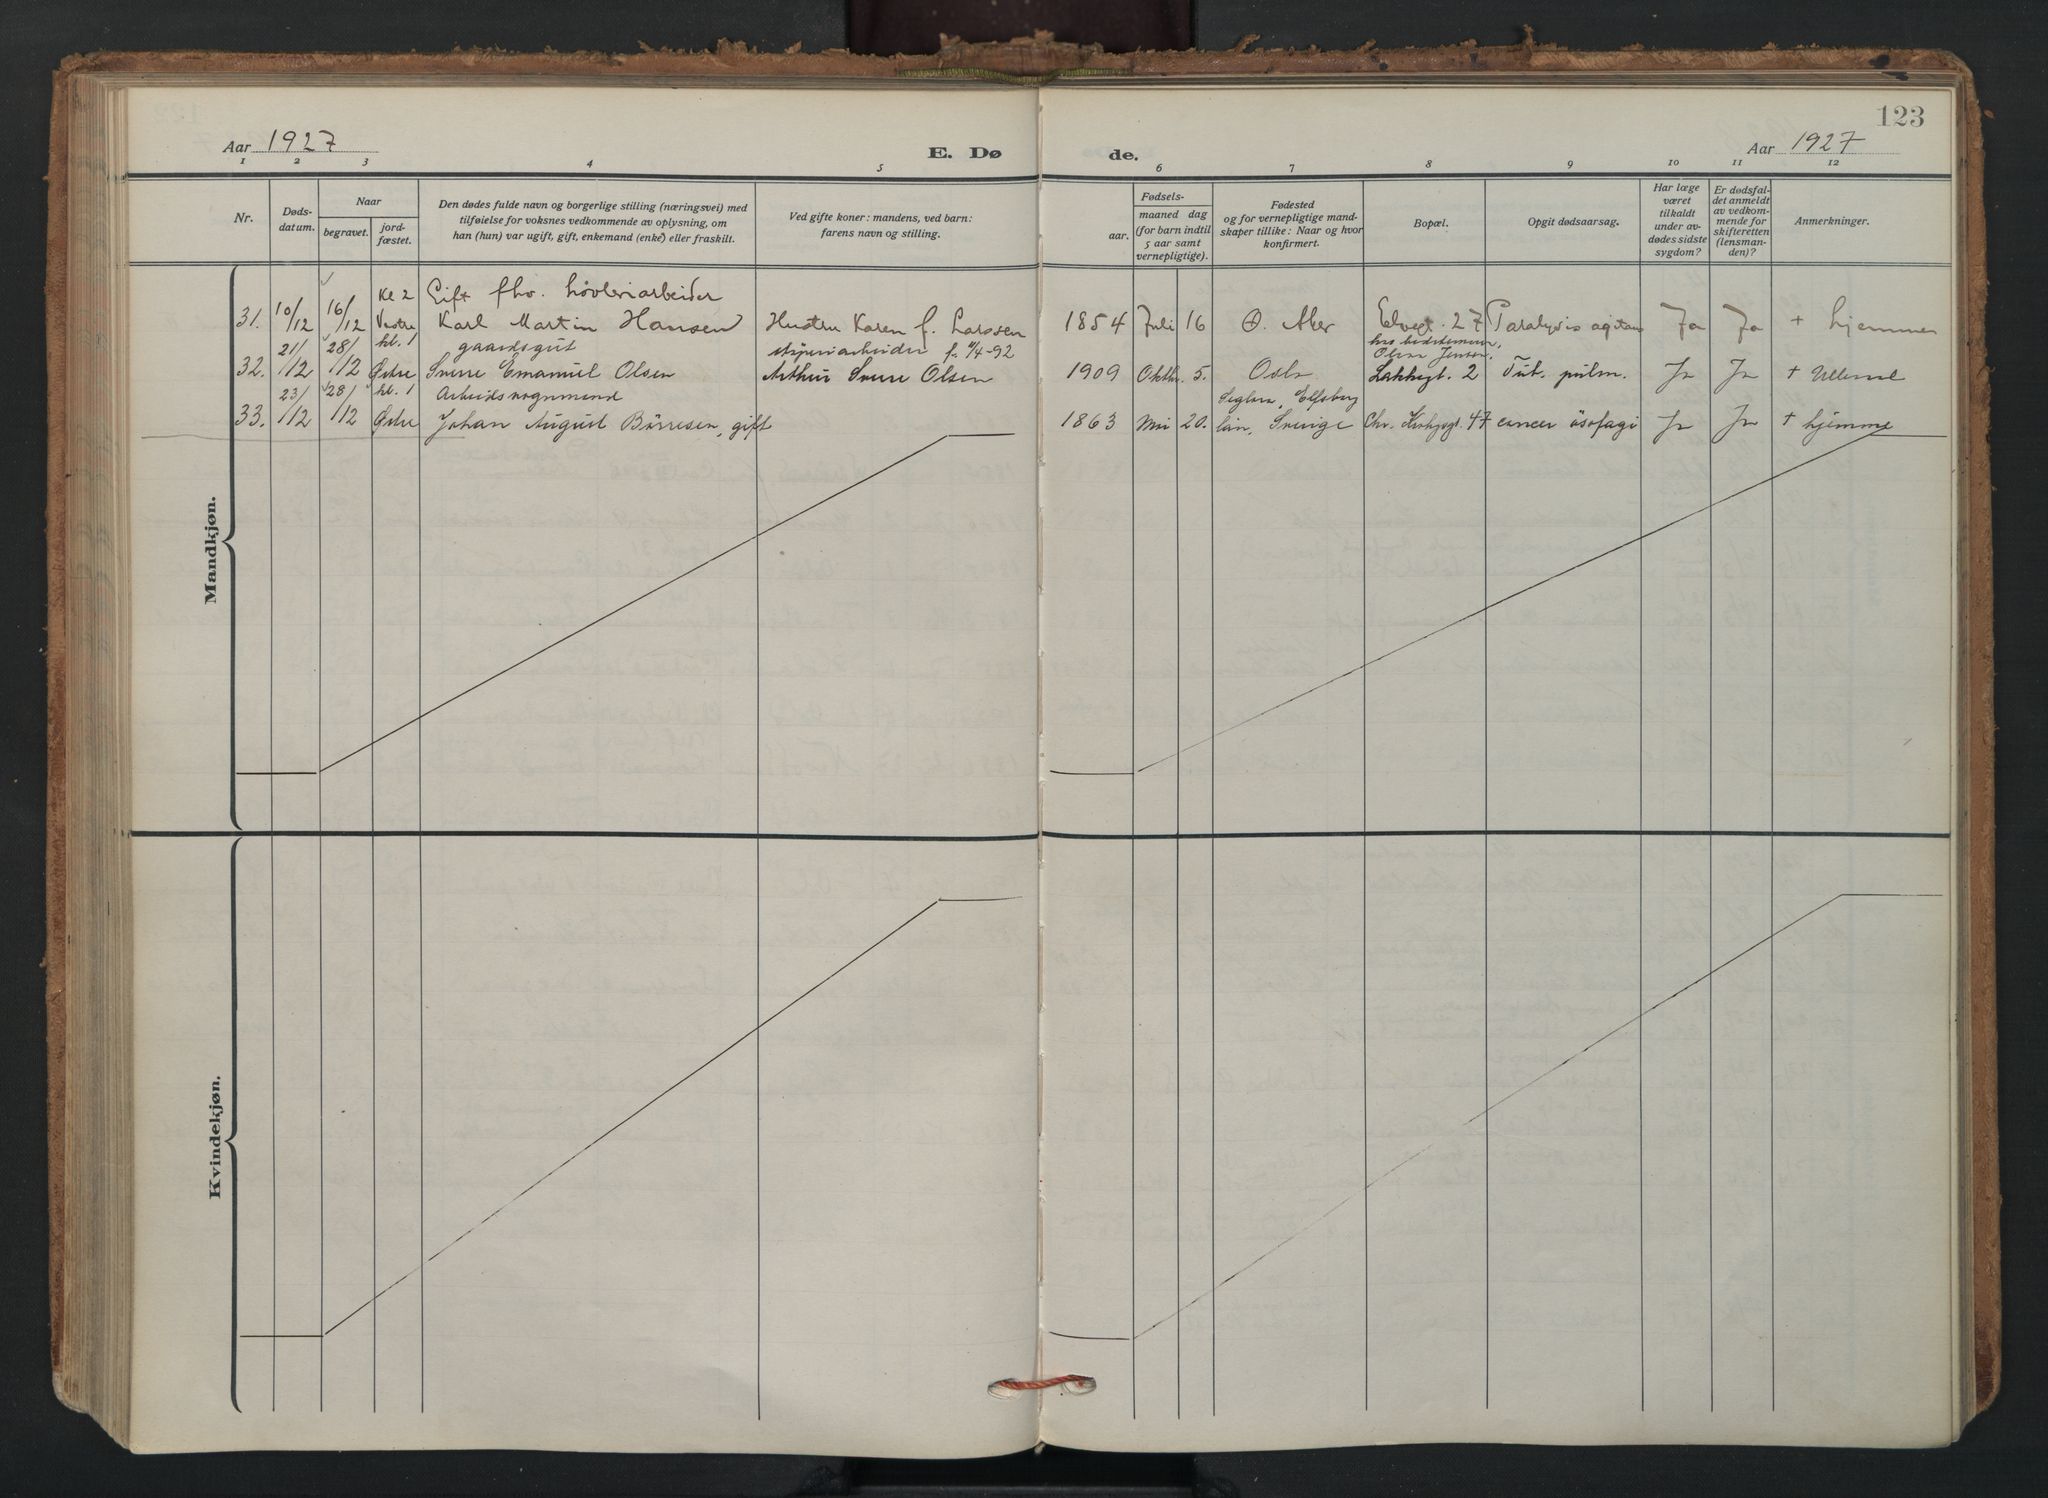 123
Aar 1927
E. Dø
de.
Aar 1927
1 2 3 4 5 6 7 8 9 10 11 12
Nr.
Døds-
datum.
Naar
begravet.
jord-
fæstet.
Den dødes fulde navn og borgerlige stilling (næringsvei) med
tilføielse for voksnes vedkommende av oplysning, om
han (hun) var ugift, gift, enkemand (enke) eller fraskilt.
Ved gifte koner: mandens, ved barn:
farens navn og stilling.
Fødsels-
aar.
maaned dag
(for barn indtil
5 aar samt
vernepligtige).
Fødested
og for vernepligtige mand-
skaper tillike: Naar og hvor
konfirmert.
Bopæl.
Opgit dødsaarsag.
Har læge
været
tilkaldt
under av-
dødes sidste
sygdom?
Er dødsfal-
det anmeldt
av vedkom-
mende for
skifteretten
(lensman-
den)?
Anmerkninger.
Mandkjøn.
kl 2 Gift fhv. høvleriarbeider
31. 10/12 16/12 Vestre Karl Martin Hansen Hustru Karen f. Larssen 1854 Juli 16 Ø. Aker Elvegt. 27 Paralysis agitans Ja Ja + hjemme
kl. 1 gaardsgut f. 4-92 Jensen,
32. 21/12 28/12 Østre Sverre Emanuel Olsen Arthur Sverre Olsen 1909 Oktbr. 5. Oslo Lakkegt. 2 Tub. pulm. Ja Ja + Ullevål
kl. 1 Arbeidsvognmand Seglora, Elfsborg
33. 23/12 28/12 Østre Johan August Børresen, gift 1863 Mai 20. län, Sverige Chr. Krohgsgt. 47 cancer øsofagi Ja Ja + hjemme
Kvindekjøn.